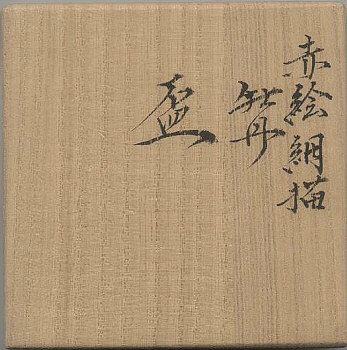 赤絵細描
牡丹
盃